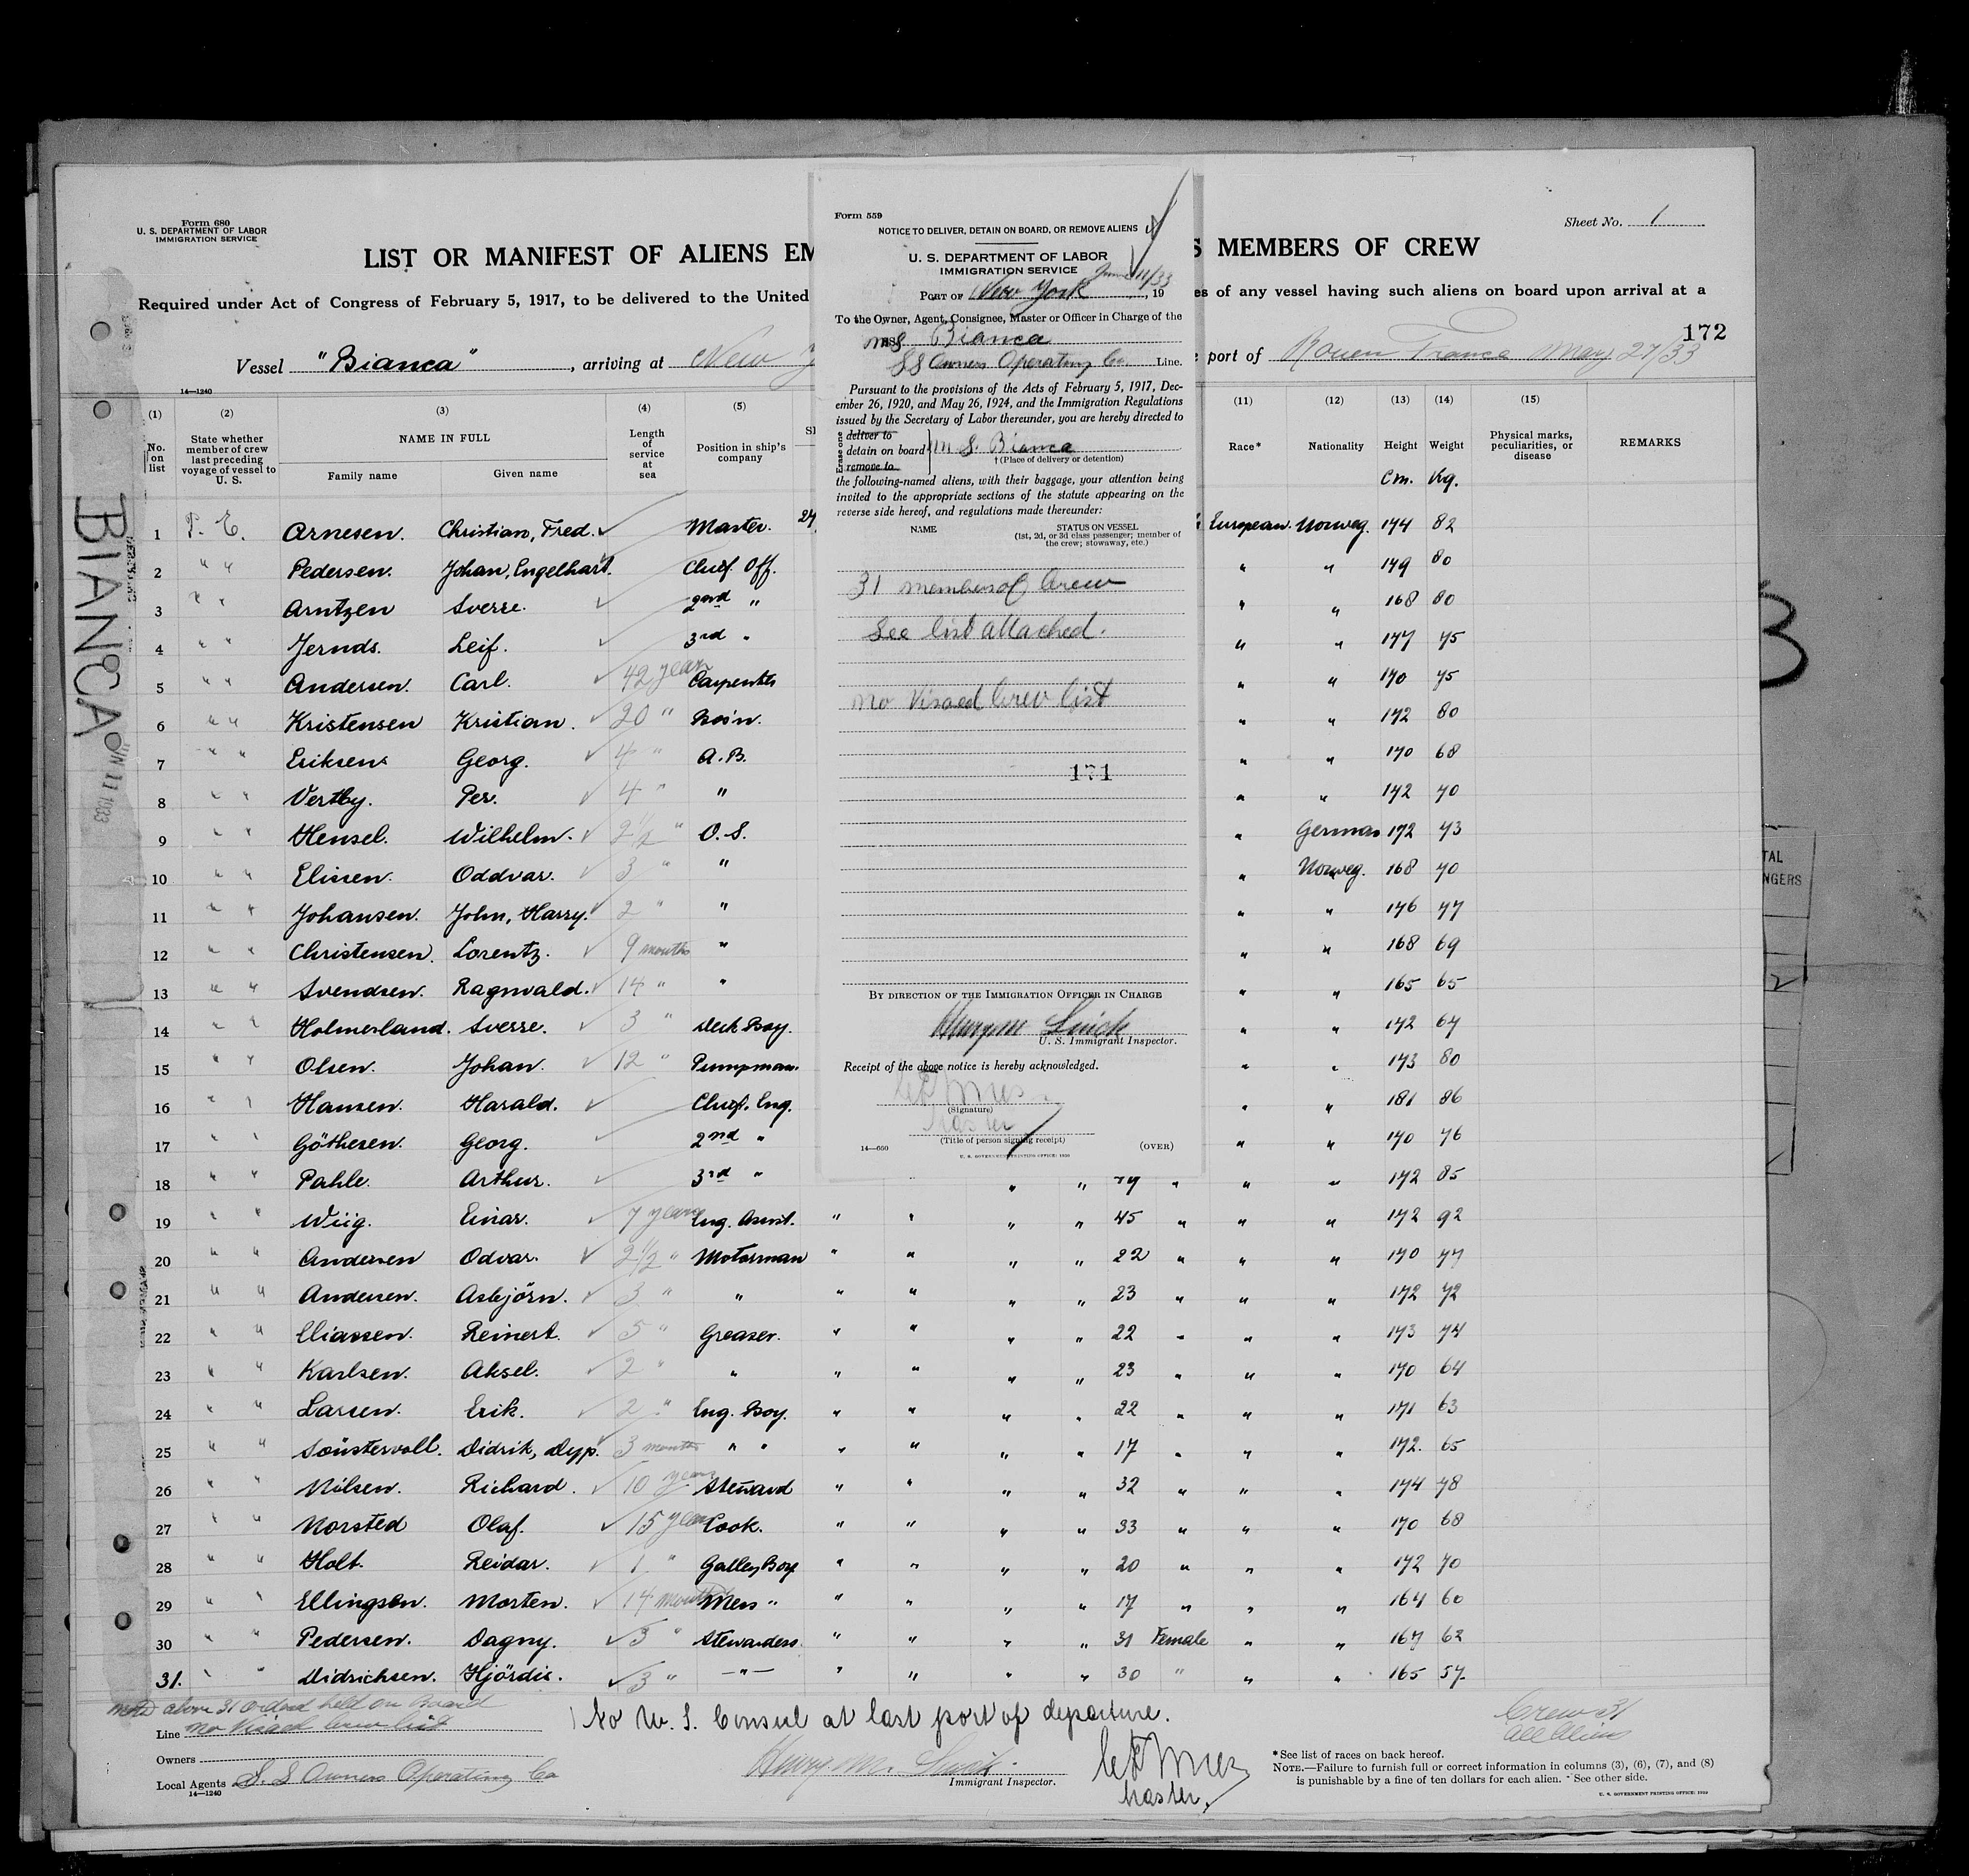 Form 680
U. S. DEPARTMENT OF LABOR
IMMIGRATION SERVICE
Sheet No. 1
LIST OR MANIFEST OF ALIENS EM
S MEMBERS OF CREW
Required under Act of Congress of February 5, 1917, to be delivered to the United
es of any vessel having such aliens on board upon arrival at a
172
Vessel "Bianca", arriving at New
port of Rouen France May 27/33
14—1240
(1) (2) (3) (4) (5) (11) (12) (13) (14) (15)
No. on list State whether member of crew last preceding voyage of vessel to U. S. NAME IN FULL Family name Given name Length of service at sea Position in ship's company Race* Nationality Height Weight Physical marks, peculiarities, or disease REMARKS
Cm. Kg.
1 P. E. Arnesen. Christian, Fred. Master. 24 European. Norweg. 174 82
2 " " Pedersen. Johan, Engelhart. Chief. Off. " " 179 80
3 " " Arntzen Sverre. 2nd " " " 168 80
4 " " Jernds. Leif. 3rd " " " 177 75
5 " " Andersen. Carl. 42 years Carpenter " " 170 75
6 " " Kristensen Kristian. 20 " Bos'n. " " 172 80
7 " " Eriksen. Georg. 4 " A.B. " " 170 68
8 " " Vertby. Per. 4 " " " " 172 70
9 " " Hensel. Wilhelm. 2 1/2 " O. S. " German 172 73
10 " " Elissen. Oddvar. 3 " " " Norweg. 168 70
11 " " Johansen. John, Harry. 2 " " " " 176 77
12 " " Christensen. Lorentz. 9 months " " " 168 69
13 " " Svendsen. Ragnvald. 14 " " " " 165 65
14 " " Holmesland. Sverre. 3 " Deck Boy. " " 172 67
15 " " Olsen. Johan. 12 " Pumpman. " " 173 80
16 " " Hansen. Harald. Chief. Eng. " " 181 86
17 " " Göthesen. Georg. 2nd " " " 170 76
18 " " Pahle. Arthur. 3rd " " " " " " 172 85
19 " " Wiig. Einar. 7 years Eng. Assist. " " " " 45 " " " 172 92
20 " " Andersen Odvar. 2 1/2 " Motorman " " " " 22 " " " 170 77
21 " " Andersen. Asbjörn. 3 " " " " " " 23 " " " 172 72
22 " " Eliassen. Reinert. 5 " Greaser. " " " " 22 " " " 173 74
23 " " Karlsen. Aksel. 2 " " " " " " 23 " " " 170 64
24 " " Larsen. Erik. 2 " Eng. Boy. " " " " 22 " " " 171 63
25 " " Soüstervoll. Didrik, Dyp. 3 months " " " " " " 17 " " " 172. 65
26 " " Nilsen. Richard. 10 years Steward " " " " 32 " " " 174 78
27 " " Norsted Olaf. 15 years Cook. " " " " 33 " " " 170 68
28 " " Holt. Reidar. 1 " Galley Boy " " " " 20 " " " 172 70
29 " " Ellingsen. Morten. 14 months Mess " " " " " 17 " " " 164 60
30 " " Pedersen. Dagny. 3 " Stewardess. " " " " 31 Female " " 167 62
31. " " Didrichsen. Hjördis. 3 " —"— " " " " 30 " " " 165 57
above 31 Ordered held on Board
Line No Visaed Crew list
No U. S. Consul at last port of departure.
Crew 31
All Aliens
Owners
Local Agents S. S Owners Operating Co
14—1240
Henry M.
Immigrant Inspector.
Master.
*See list of races on back hereof.
NOTE.—Failure to furnish full or correct information in columns (3), (6), (7), and (8)
is punishable by a fine of ten dollars for each alien. See other side.
U. S. GOVERNMENT PRINTING OFFICE
Form 559
NOTICE TO DELIVER, DETAIN ON BOARD, OR REMOVE ALIENS
U. S. DEPARTMENT OF LABOR
IMMIGRATION SERVICE
June 11/33
PORT OF New York, 19
To the Owner, Agent, Consignee, Master or Officer in Charge of the
MS Bianca
SS Owners Operating Co. Line.
Pursuant to the provisions of the Acts of February 5, 1917, Dec-
ember 26, 1920, and May 26, 1924, and the Immigration Regulations
issued by the Secretary of Labor thereunder, you are hereby directed to
Erase one
deliver to
detain on board M. S. Bianca
remove to
†(Place of delivery or detention)
the following-named aliens, with their baggage, your attention being
invited to the appropriate sections of the statute appearing on the
reverse side hereof, and regulations made thereunder:
NAME STATUS ON VESSEL
(1st, 2d, or 3d class passenger; member of
the crew; stowaway, etc.)
31 members of Crew
See list attached.
No Visaed Crew list
171
BY DIRECTION OF THE IMMIGRATION OFFICER IN CHARGE
U. S. Immigrant Inspector.
Receipt of the above notice is hereby acknowledged.
(Signature)
Master
(Title of person signing receipt)
14—600
(OVER)
U. S. GOVERNMENT PRINTING OFFICE: 1930
BIANCA
JUN 11 1933
TAL
NGERS
3
2